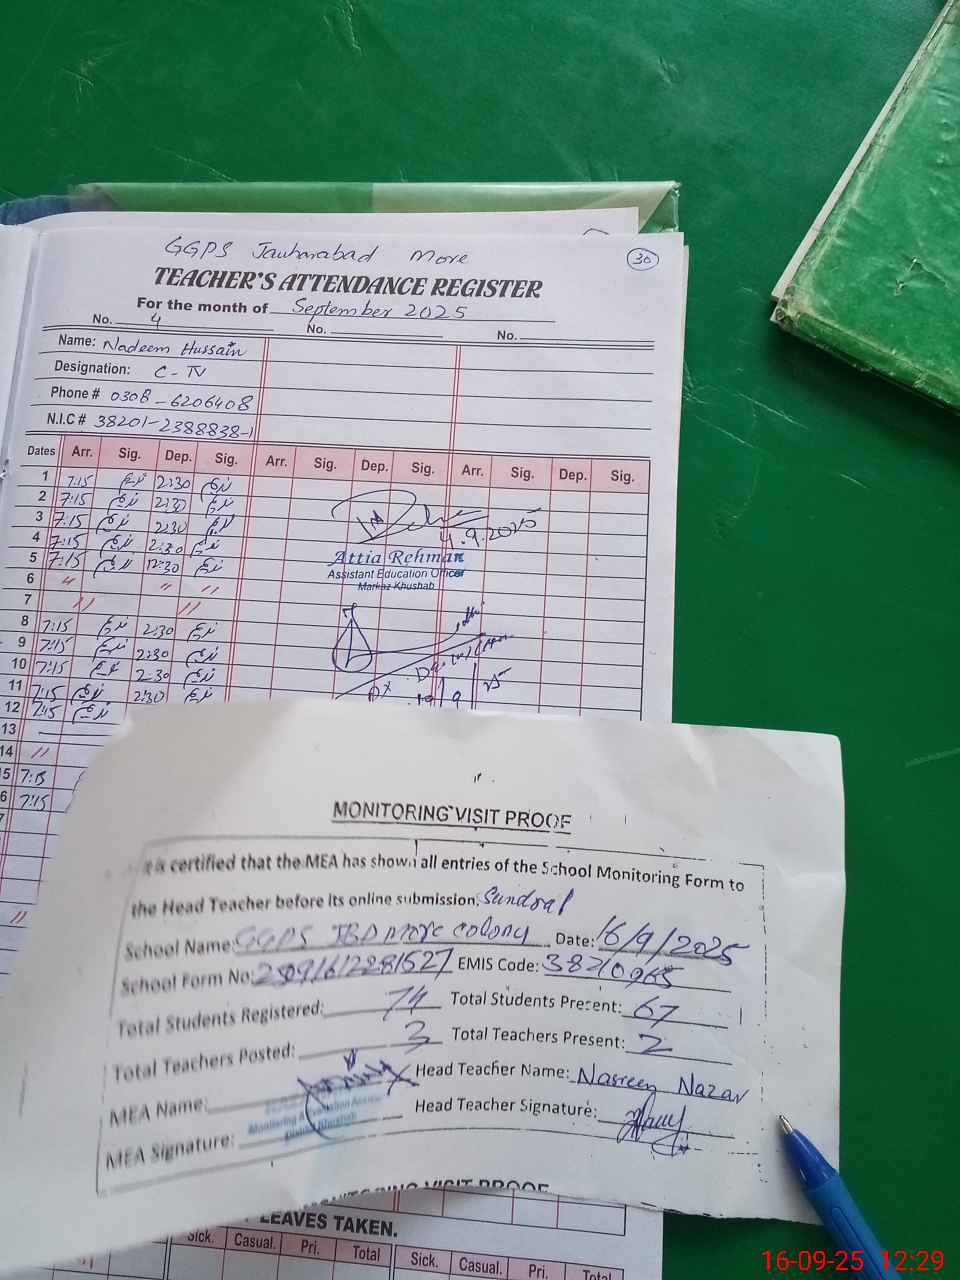 GGPS Jauharabad More
30
TEACHER'S ATTENDANCE REGISTER
For the month of September 2025
No. 4 No. No.
Name: Nadeem Hussain
Designation: C-IV
Phone # 0308-6206408
N.I.C # 38201-2388838-1
Dates Arr. Sig. Dep. Sig. Arr. Sig. Dep. Sig. Arr. Sig. Dep. Sig.
1 7:15 2:30
2 7:15 2:30
3 7:15 2:30
4 7:15 2:30
4.9.2025
5 7:15 12:30
Attia Rehman
Assistant Education Officer
Markaz Khushab
6 " " "
7 " "
8 7:15 2:30
9 7:15 2:30
10 7:15 2:30
11 7:15 2:30
12 7:15
13
14 "
5 7:15
6 7:15
7
"
MONITORING VISIT PROOF
is certified that the MEA has shown all entries of the School Monitoring Form to
the Head Teacher before its online submission. Sundral
School Name: GGPS JBD More Colony Date: 16/9/2025
School Form No: EMIS Code: 38210965
Total Students Registered: 74 Total Students Present: 67
Total Teachers Posted: 3 Total Teachers Present: 2
MEA Name: Head Teacher Name: Nasreen Nazar
MEA Signature: Head Teacher Signature:
Monitoring
Khushab
VISIT PROOF
LEAVES TAKEN.
Sick. Casual. Pri. Total Sick. Casual. Pri. Total
16-09-25 12:29